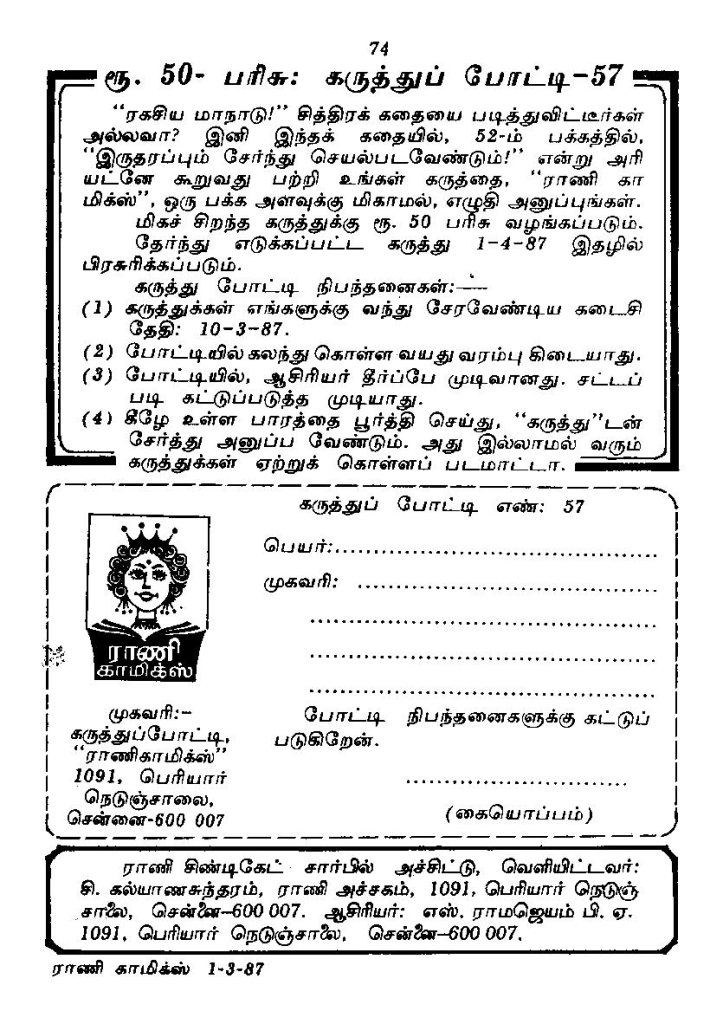 74
ரூ. 50- பரிசு: கருத்துப் போட்டி-57
"ரகசிய மாநாடு!" சித்திரக் கதையை படித்துவிட்டீர்கள்
அல்லவா? இனி இந்தக் கதையில், 52-ம் பக்கத்தில்,
"இருதரப்பும் சேர்ந்து செயல்படவேண்டும்!" என்று அரி
யட்னே கூறுவது பற்றி உங்கள் கருத்தை, "ராணி கா
மிக்ஸ்", ஒரு பக்க அளவுக்கு மிகாமல், எழுதி அனுப்புங்கள்.
மிகச் சிறந்த கருத்துக்கு ரூ. 50 பரிசு வழங்கப்படும்.
தேர்ந்து எடுக்கப்பட்ட கருத்து 1-4-87 இதழில்
பிரசுரிக்கப்படும்.
கருத்து போட்டி நிபந்தனைகள்:—
(1) கருத்துக்கள் எங்களுக்கு வந்து சேரவேண்டிய கடைசி
தேதி: 10-3-87.
(2) போட்டியில் கலந்து கொள்ள வயது வரம்பு கிடையாது.
(3) போட்டியில், ஆசிரியர் தீர்ப்பே முடிவானது. சட்டப்
படி கட்டுப்படுத்த முடியாது.
(4) கீழே உள்ள பாரத்தை பூர்த்தி செய்து, "கருத்து"டன்
சேர்த்து அனுப்ப வேண்டும். அது இல்லாமல் வரும்
கருத்துக்கள் ஏற்றுக் கொள்ளப் படமாட்டா.
கருத்துப் போட்டி எண்: 57
பெயர்:......................................
முகவரி: ...................................
.........................................
.........................................
.........................................
ராணி
காமிக்ஸ்
முகவரி:-
கருத்துப்போட்டி,
"ராணிகாமிக்ஸ்"
1091, பெரியார்
நெடுஞ்சாலை,
சென்னை-600 007
போட்டி நிபந்தனைகளுக்கு கட்டுப்
படுகிறேன்.
..........................
(கையொப்பம்)
ராணி சிண்டிகேட் சார்பில் அச்சிட்டு, வெளியிட்டவர்:
சி. கல்யாணசுந்தரம், ராணி அச்சகம், 1091, பெரியார் நெடுஞ்
சாலை, சென்னை-600 007. ஆசிரியர்: எஸ். ராமஜெயம் பி. ஏ.
1091, பெரியார் நெடுஞ்சாலை, சென்னை-600 007.
ராணி காமிக்ஸ் 1-3-87